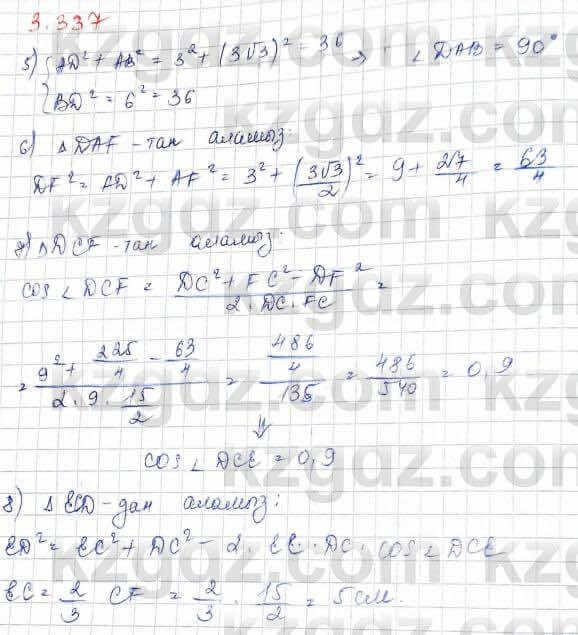 3.337
5) {AD² + AB² = 3² + (3√3)² = 36 => ∠DAB = 90°
BD² = 6² = 36
6) △DAF-тан аламыз:
DF² = AD² + AF² = 3² + (3√3/2)² = 9 + 27/4 = 63/4
7) △DCF-тан аламыз:
cos∠DCF = (DC² + FC² - DF²)/(2·DC·FC) =
= (9² + 225/4 - 63/4)/(2·9·15/2) = (486/4)/135 = 486/540 = 0,9
⇓
cos∠DCE = 0,9
8) △ECD-дан аламыз:
ED² = EC² + DC² - 2·EC·DC·cos∠DCE
EC = 2/3 CF = 2/3 · 15/2 = 5 см.
kzgdz.com